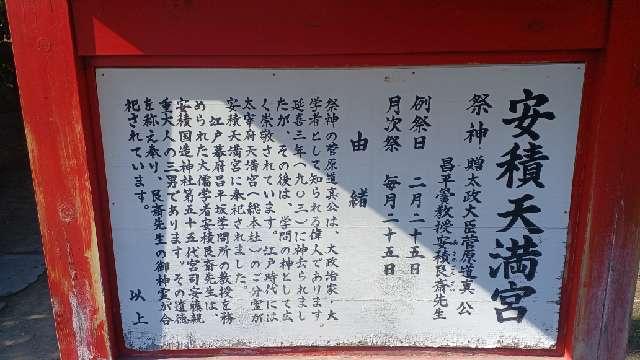 安積天満宮
祭神 贈太政大臣菅原道真公
昌平黌教授安積艮斎先生
例祭日 二月二十五日
月次祭 毎月二十五日
由緒
祭神の菅原道真公は、大政治家・大
学者として知られる偉人であります。
延喜三年(九〇三)に神さられまし
たが、その後は、学問の神として広
く崇敬されています。江戸時代には
太宰府天満宮(総本社)のご分霊が
安積天満宮に奉祀されました。
江戸幕府昌平坂学問所の教授を務
められた大儒学者安積艮斎先生は、
安積国造神社第五十五代宮司安藤親
重大人の三男であります。その遺徳
を称え奉り、艮斎先生の御神霊が合
祀されています。
以上